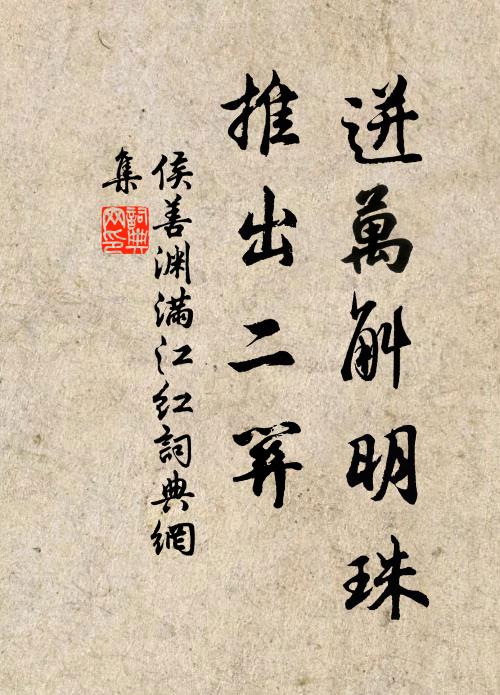 迸萬斛明珠
推出二
侯善渊满江红詞典網
集
詞典网印